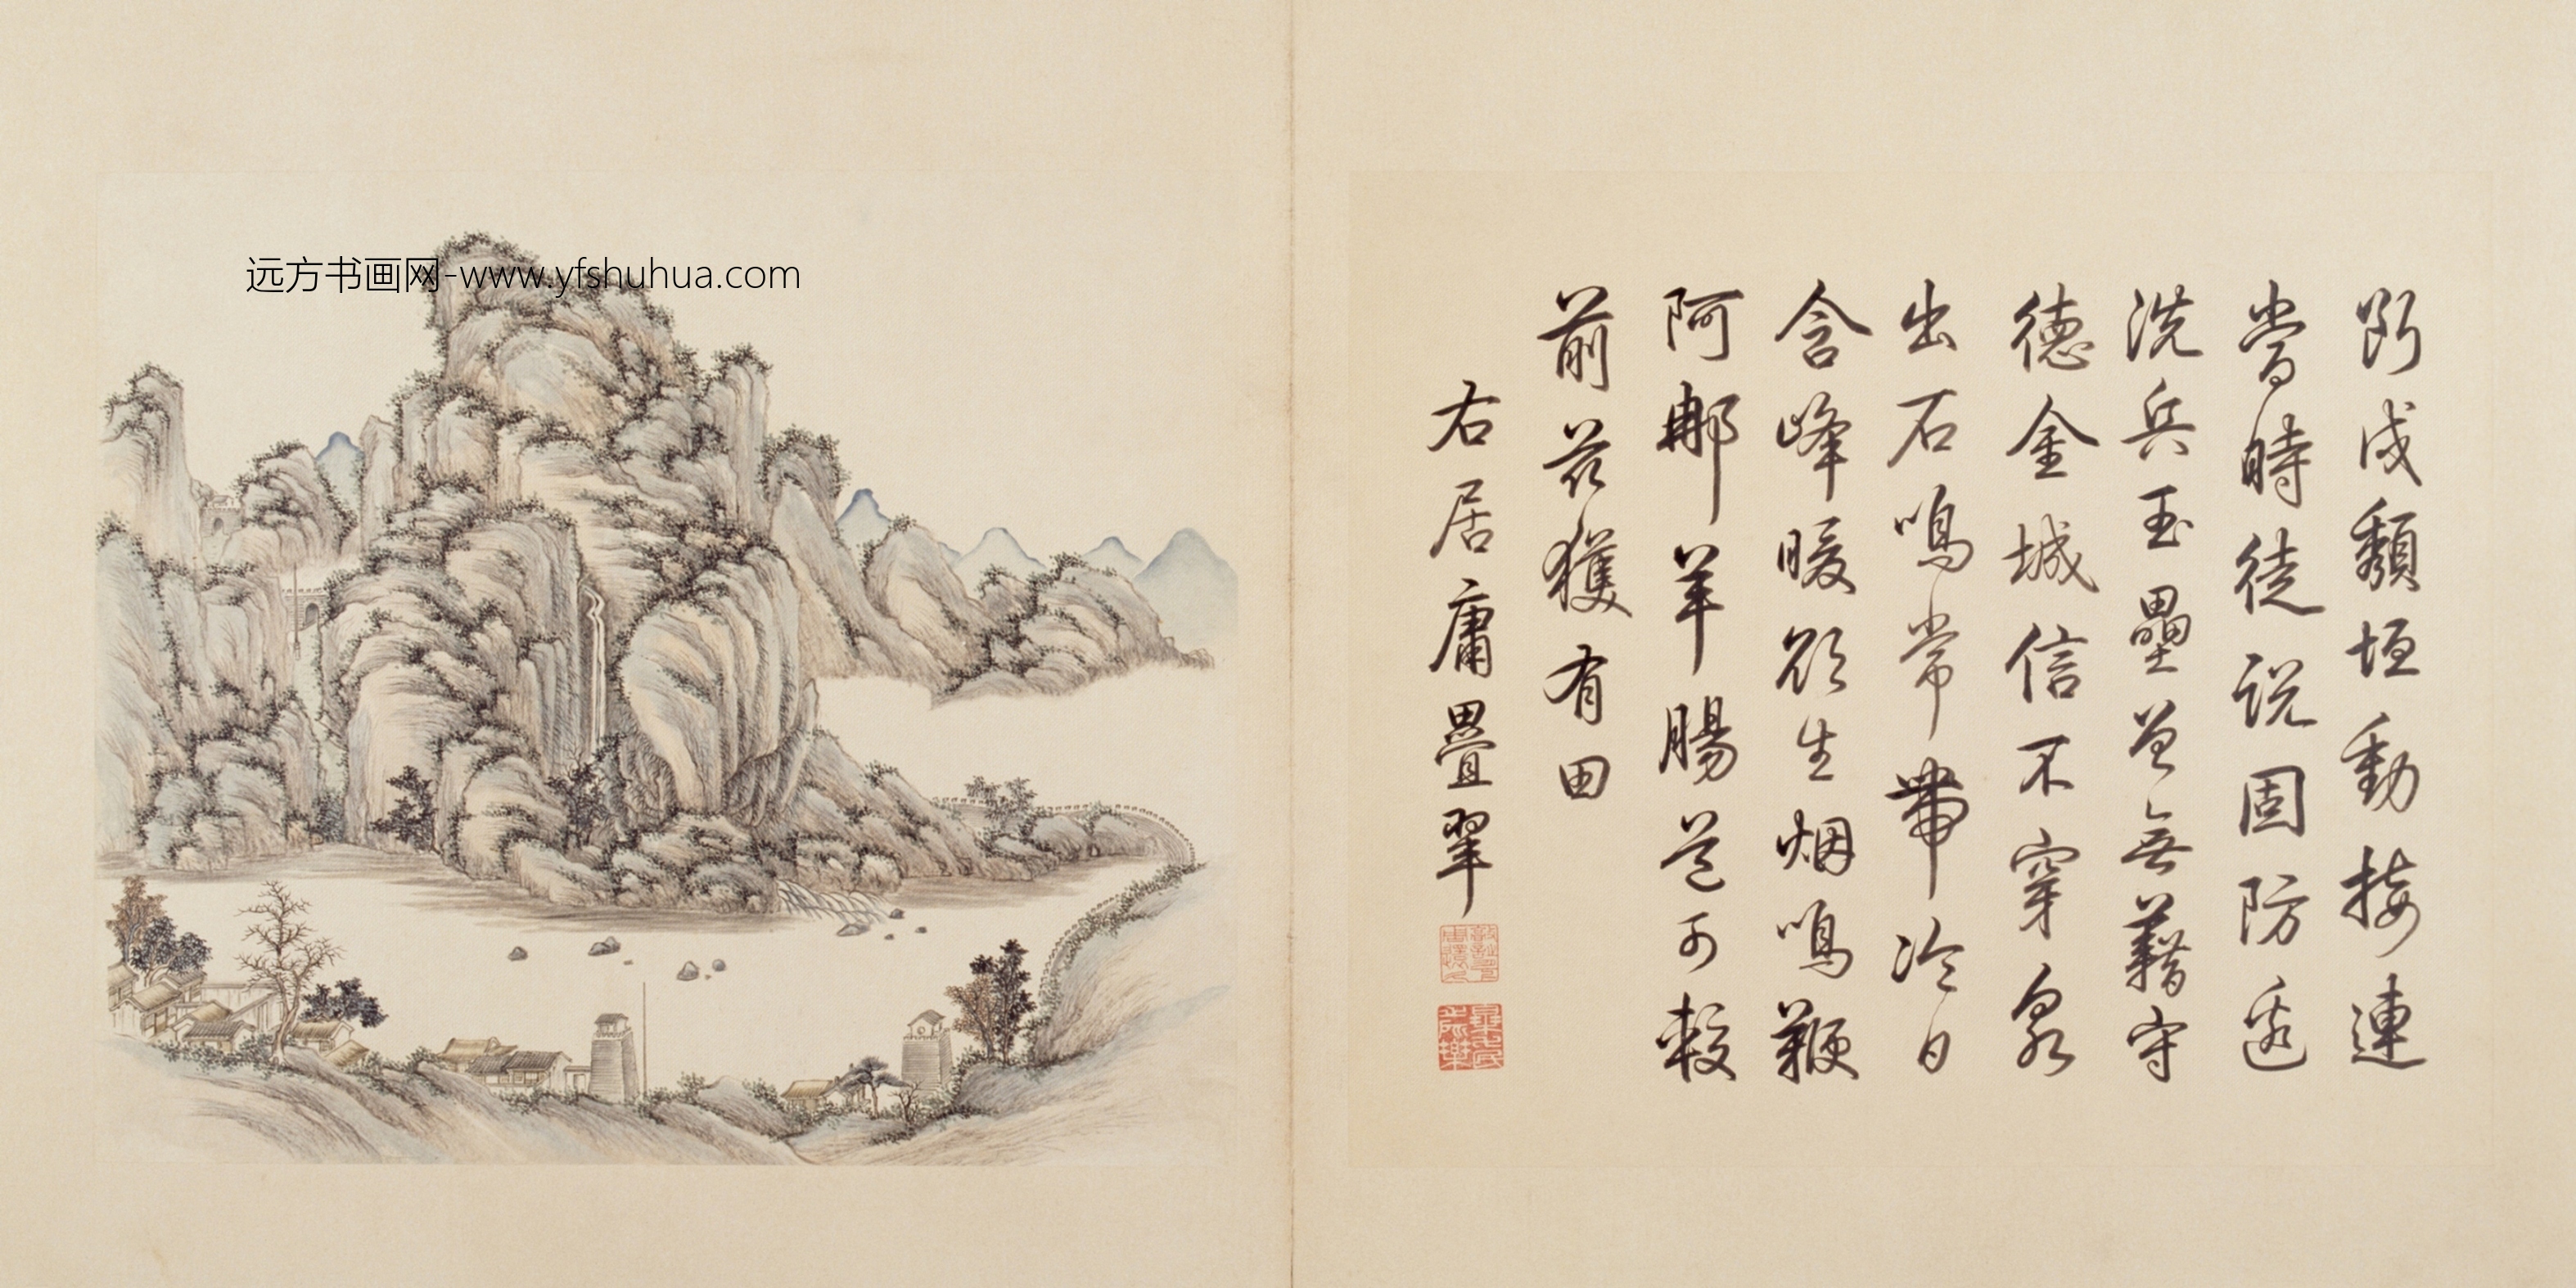 远方书画网-www.yfshuhua.com
断戍頹垣動接連
當時徒说固防邊
洗兵玉壘曾無藉守
德金城信不穿泉
出石鳴常帶冷日
含峰暖欲生烟鳴鞭
阿那羊腸道可較
前茲獲有田
右居庸疊翠